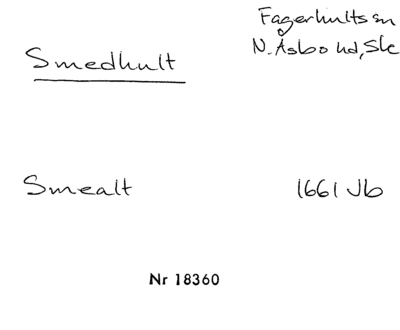 Fagerhults sn
Smedhult
N. Åsbo hd, Sk
Smealt 1661 Jb
Nr 18360